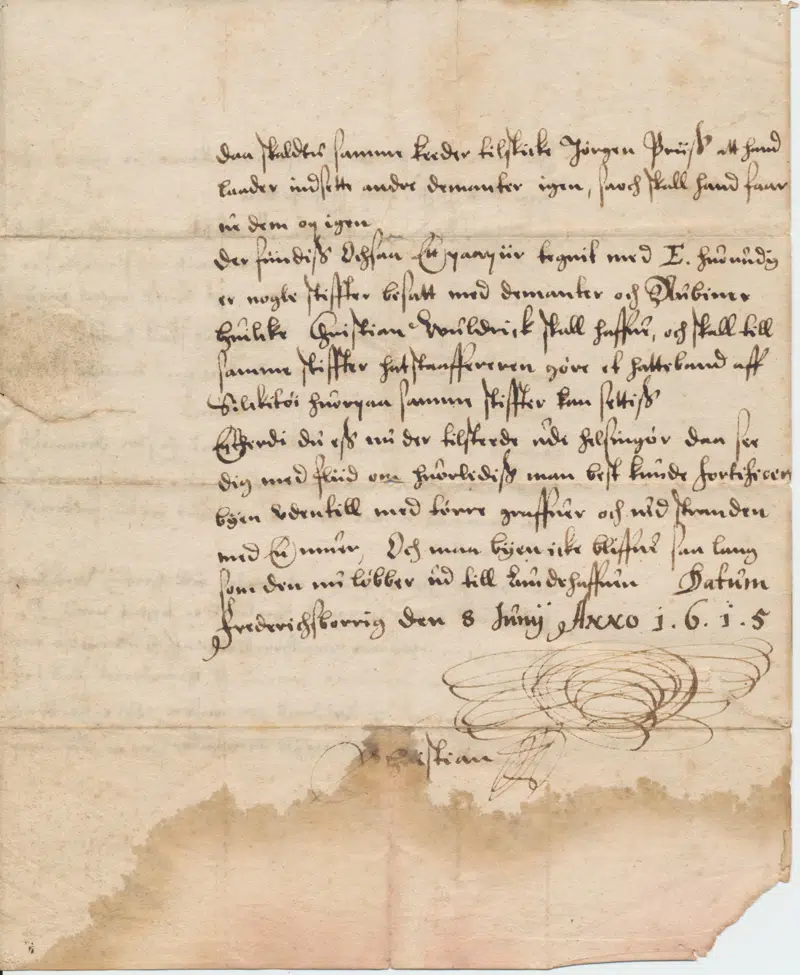 daa skaldtu samme keeder tilskicke Jörgen Prüss att hand
laader indsette andre demanter igen, saoch skall hand faar
ue dem op igen
der findiss Ochsaa Ett papyir tegnit med E. huorudij
er nogle stiffter besatt med demanter och Rubiner
huilcke Christian Wuldrick skall haffue, och skall till
samme stiffter hatstaaffereren göre et hatteband aff
Silketöi huorpaa samme stiffter kan settiss
Efterdi du est nu der tilsteede ude helsingör daa see
dig med fliid om huorlediss man best kunde fortificere
byen udentill med törre graffuer och ued stranden
med En muer, Och maa byen icke bliffue saa lang
som den nu löbber ud till Lundehaffuen Datum
Frederichsborrig den 8 Junij Anno 1.6.1.5
Christian